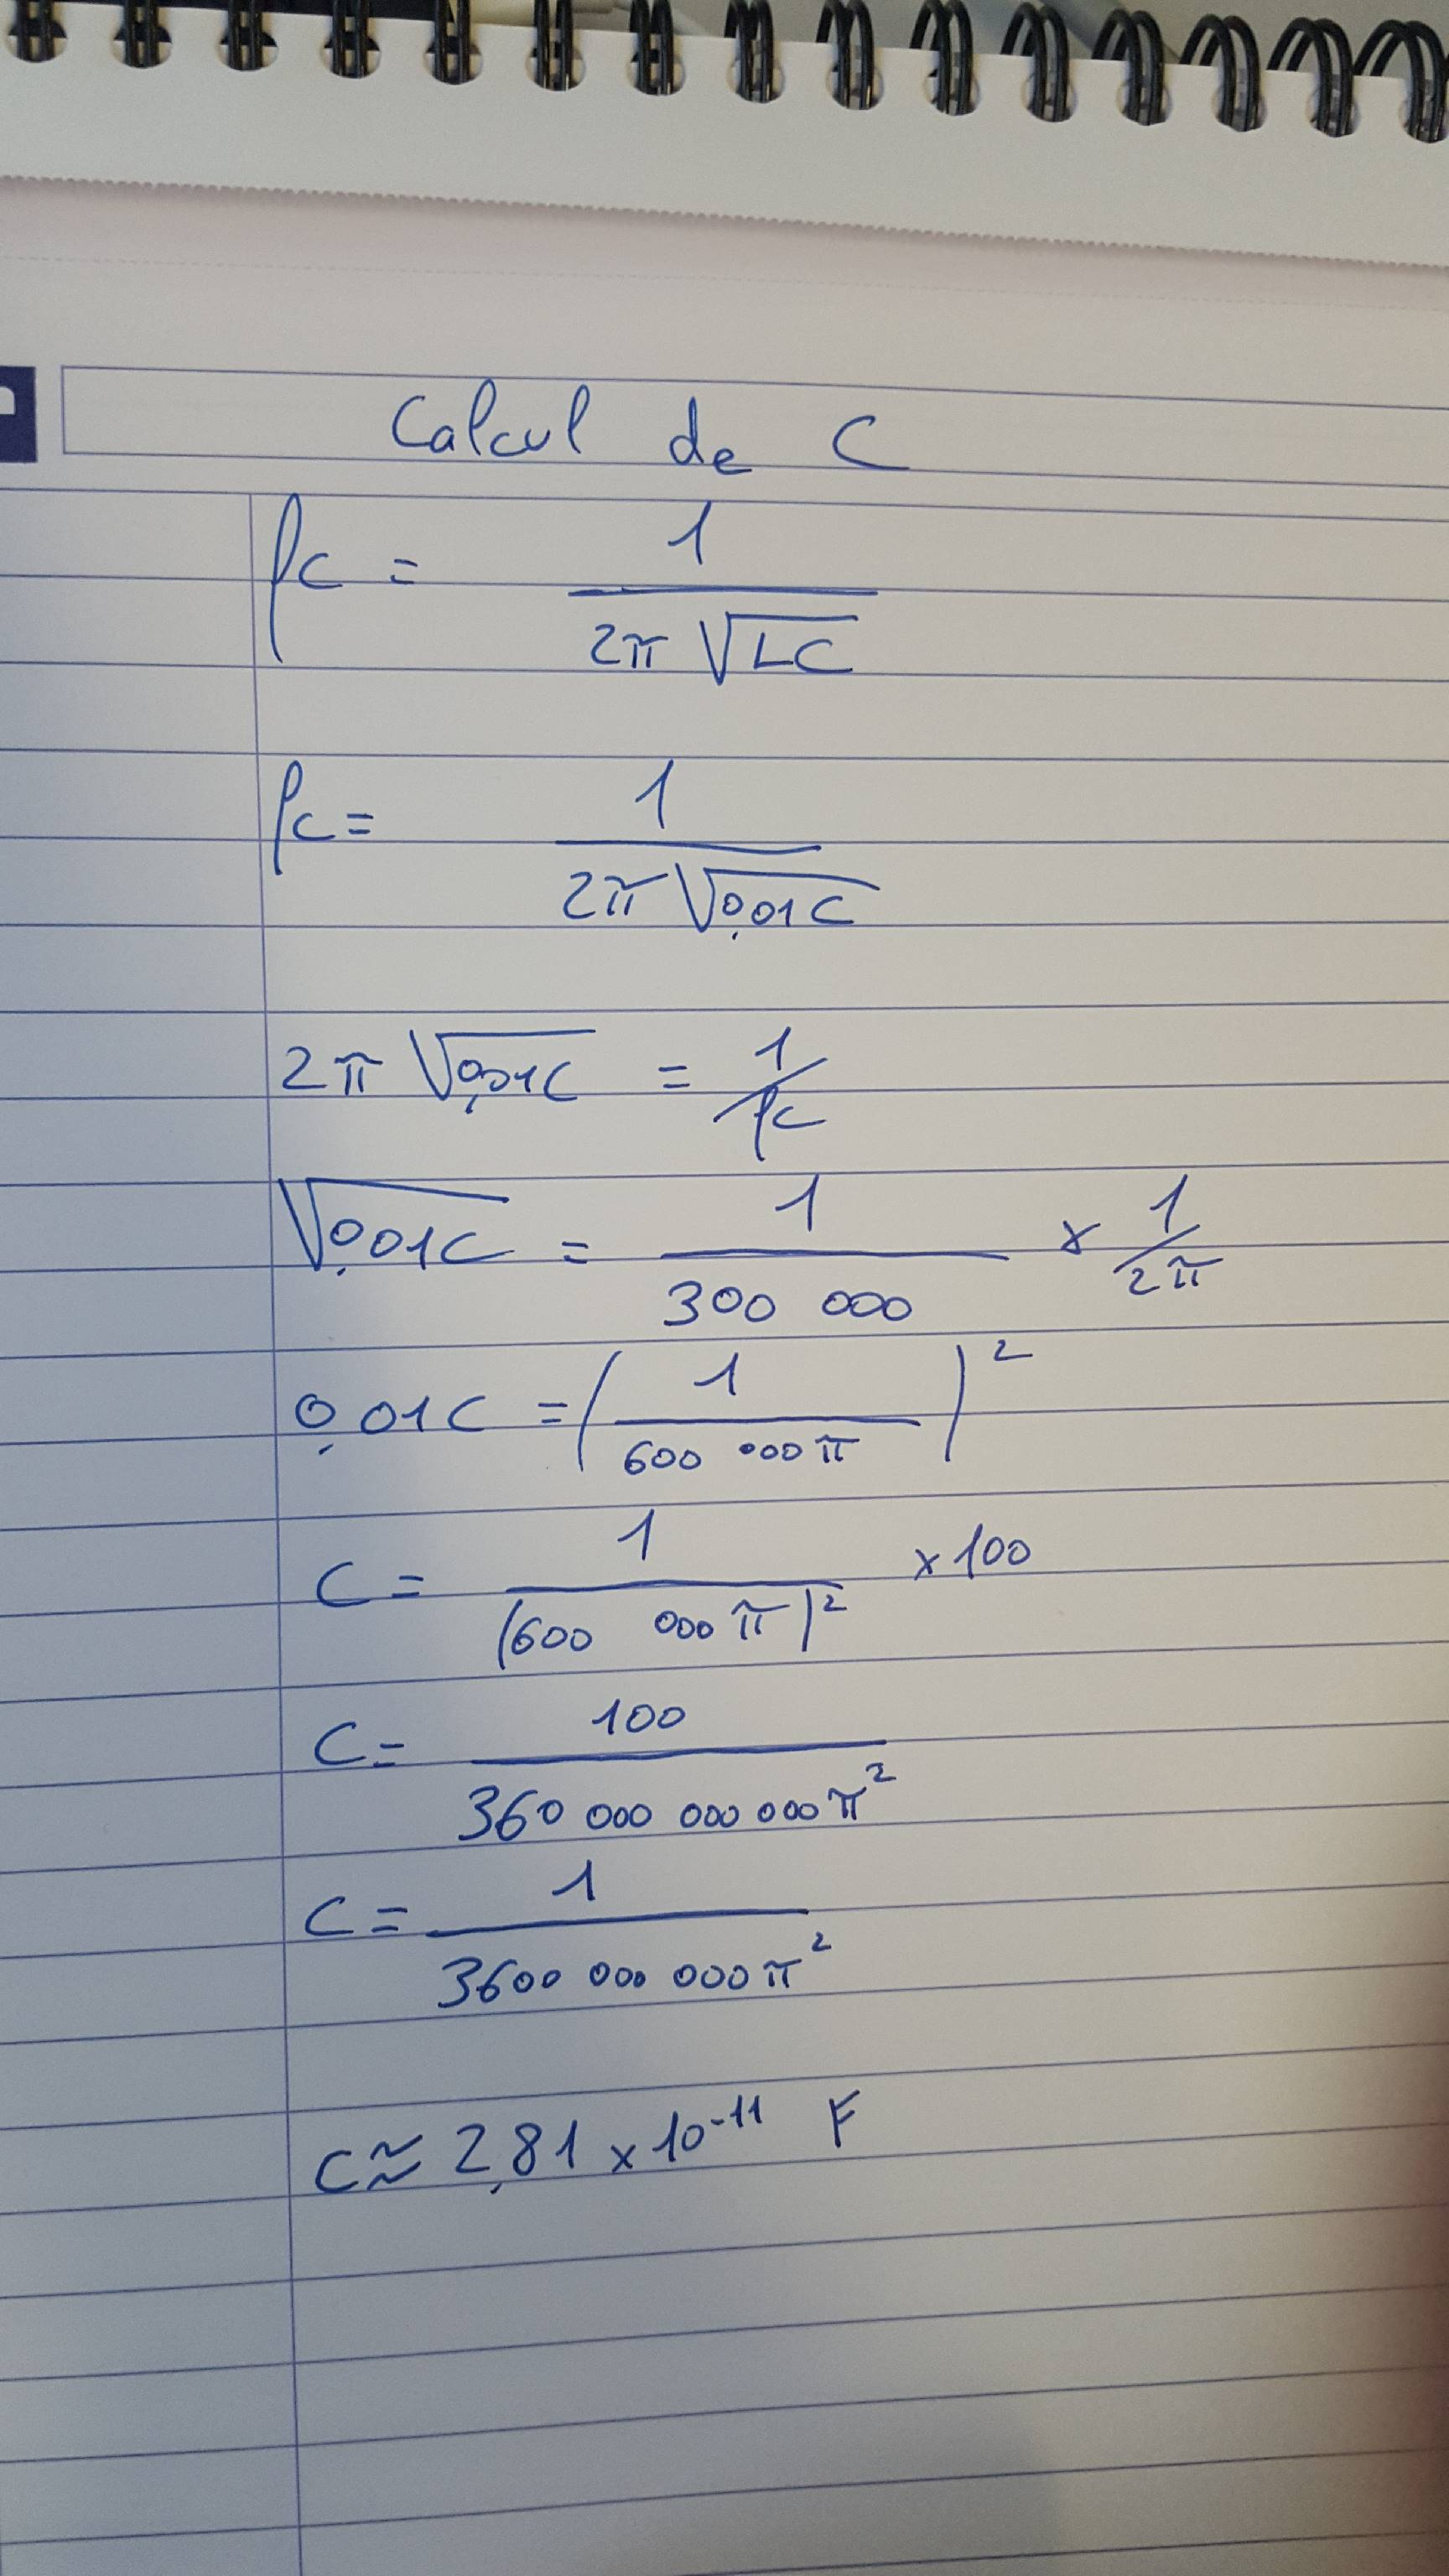 Calcul de C
fc = 1 / (2π √LC)
fc = 1 / (2π √0,01C)
2π √0,01C = 1/fc
√0,01C = 1 / 300 000 × 1/2π
0,01C = (1 / 600 000π)²
C = 1 / (600 000π)² × 100
C = 100 / 360 000 000 000π²
C = 1 / 3600 000 000π²
C ≈ 2,81 × 10⁻¹¹ F